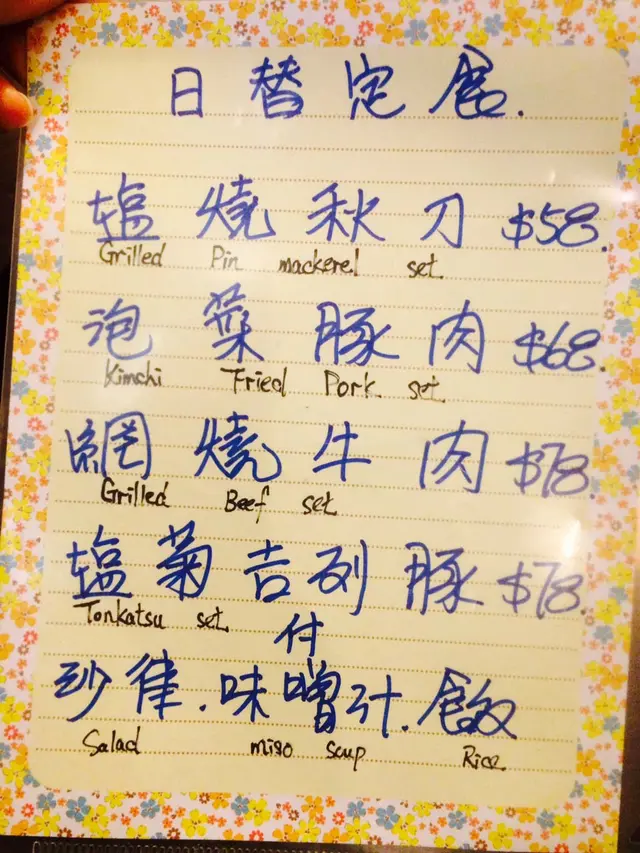 日替定食.
塩燒秋刀 $58.
Grilled Pin mackerel set
泡菜豚肉 $68.
Kimchi Fried Pork set
網燒牛肉 $78.
Grilled Beef set
塩菊吉列豚 $78.
Tonkatsu set
付
沙律.味噌汁.飯
Salad miso soup Rice